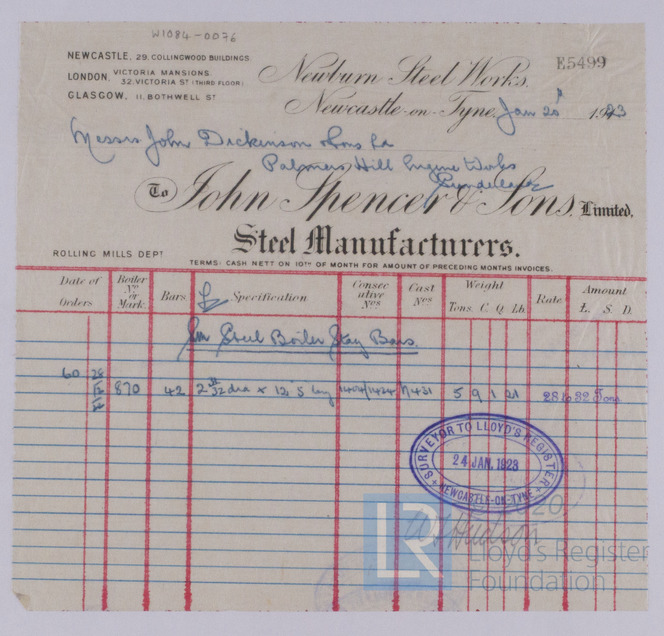 W1084-0076
NEWCASTLE, 29. COLLINGWOOD BUILDINGS
LONDON, VICTORIA MANSIONS
32. VICTORIA ST (THIRD FLOOR)
GLASGOW, 11. BOTHWELL ST
E5499
Newburn Steel Works,
Newcastle-on-Tyne, Jan 20th 1923
Messrs John Dickinson & Sons Ld
Palmers Hill Engine Works
Sunderland
To John Spencer & Sons, Limited,
Steel Manufacturers.
ROLLING MILLS DEPT
TERMS: CASH NETT ON 10TH OF MONTH FOR AMOUNT OF PRECEDING MONTHS INVOICES.
Date of Orders Boiler Nº or Mark Bars Specification Consecutive Nºs Cast Nºs Weight Tons. C. Q. Lb. Rate Amount £. S. D.
Steel Boiler Stay Bars
60 870 42 5 9 1 21 28 to 32 Tons
SURVEYOR TO LLOYD'S REGISTER
24 JAN. 1923
NEWCASTLE-ON-TYNE
Hudson
LR
Lloyd's Register
Foundation